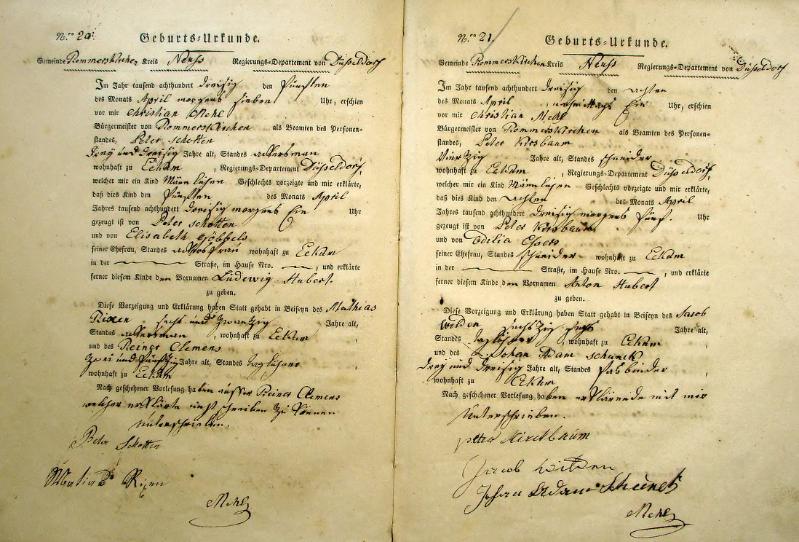 Nro 20.
Geburts-Urkunde.
Gemeinde Rommerskirchen Kreis Neuss Regierungs-Departement von Düsseldorf
Im Jahr tausend achthundert dreisig den fünften
des Monats April morgens sieben Uhr, erschien
vor mir Christian Mehl
Bürgermeister von Rommerskirchen als Beamten des Personen-
standes, Peter Schotten
Jahre alt, Standes Ackersman
wohnhaft zu Eckum, Regierungs-Departement Düsseldorf,
welcher mir ein Kind Männlichen Geschlechts vorzeigte und mir erklärte,
daß dies Kind den fünften des Monats April
Jahres tausend achthundert dreisig morgens Ein Uhr
gezeugt ist von Peter Schotten
und von Elisabeth Göbbels
seiner Ehefrau, Standes Ackersfrau wohnhaft zu Eckum
in der Straße, im Hause Nro. , und erklärte
ferner diesem Kinde den Vornamen Ludewig Hubert
zu geben.
Diese Vorzeigung und Erklärung haben Statt gehabt in Beiseyn des Mathias
Rixen sechs und zwanzig Jahre alt,
Standes Ackersman, wohnhaft zu Eckum
und des Reiner Clemens
zwei und fünfzig Jahre alt, Standes Taglöhner
wohnhaft zu Eckum
Nach geschehener Vorlesung haben ausser Reiner Clemens
welcher erklärte nicht schreiben zu können
unterschrieben.
Peter Schotten
Mathias Rixen
Mehl
Nro 21.
Geburts-Urkunde.
Gemeinde Rommerskirchen Kreis Neuss Regierungs-Departement von Düsseldorf
Im Jahr tausend achthundert dreisig den achten
des Monats April nachmittags Ein Uhr, erschien
vor mir Christian Mehl
Bürgermeister von Rommerskirchen als Beamten des Personen-
standes, Peter Kirsbaum
Vierzig Jahre alt, Standes Schneider
wohnhaft zu Eckum, Regierungs-Departement Düsseldorf,
welcher mir ein Kind Männlichen Geschlechts vorzeigte und mir erklärte,
daß dies Kind den achten des Monats April
Jahres tausend achthundert dreisig morgens fünf Uhr
gezeugt ist von Peter Kirsbaum
und von Odilia
seiner Ehefrau, Standes Schneider wohnhaft zu Eckum
in der Straße, im Hause Nro. , und erklärte
ferner diesem Kinde den Vornamen Anton Hubert
zu geben.
Diese Vorzeigung und Erklärung haben Statt gehabt in Beiseyn des Jacob
Wilden sechszig sechs Jahre alt,
Standes Taglöhner, wohnhaft zu Eckum
und des Johan Adam Schunck
drey und dreisig Jahre alt, Standes Fasbinder
wohnhaft zu Eckum
Nach geschehener Vorlesung haben erklärende mit mir
unterschrieben.
peter Kirschbaum
Jacob Wilden
Johan Adam Schunck
Mehl